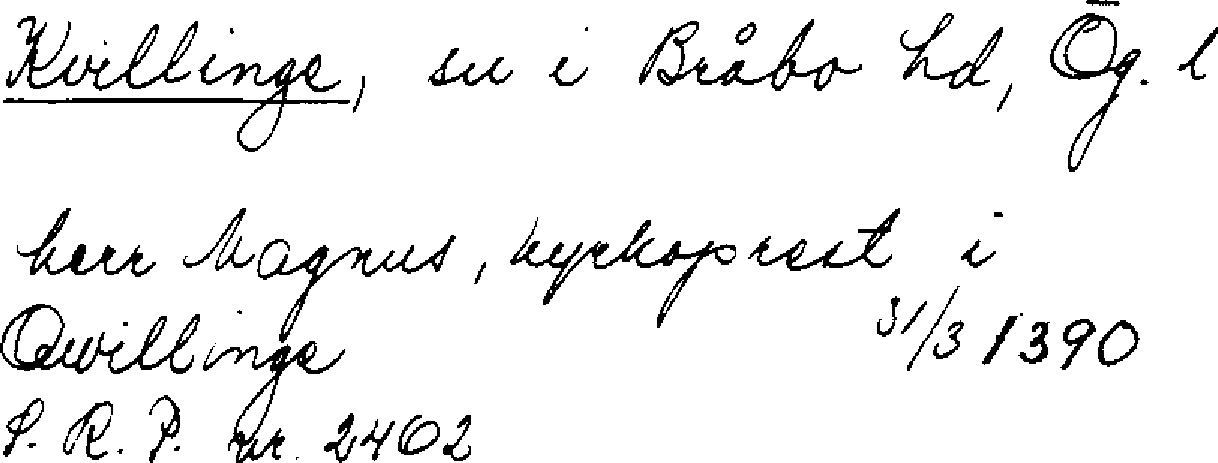 Kvillinge, sn i Bråbo hd, Ög. l
herr Magnus, kyrkoprest i
Qwillinge 31/3 1390
S. R. P. nr. 2462